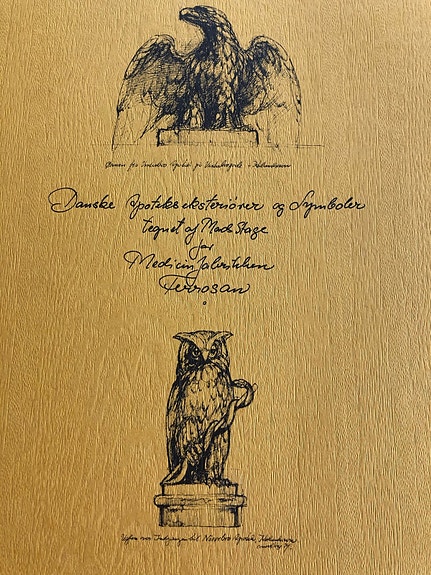 Ørnen fra Apotek på Københavns
Danske Apotekseksteriører og Symboler
tegnet af Mads Stage
for
Medicinfabrikken
Ferrosan
Uglen over Indgangen til Nørrebro Apotek, København